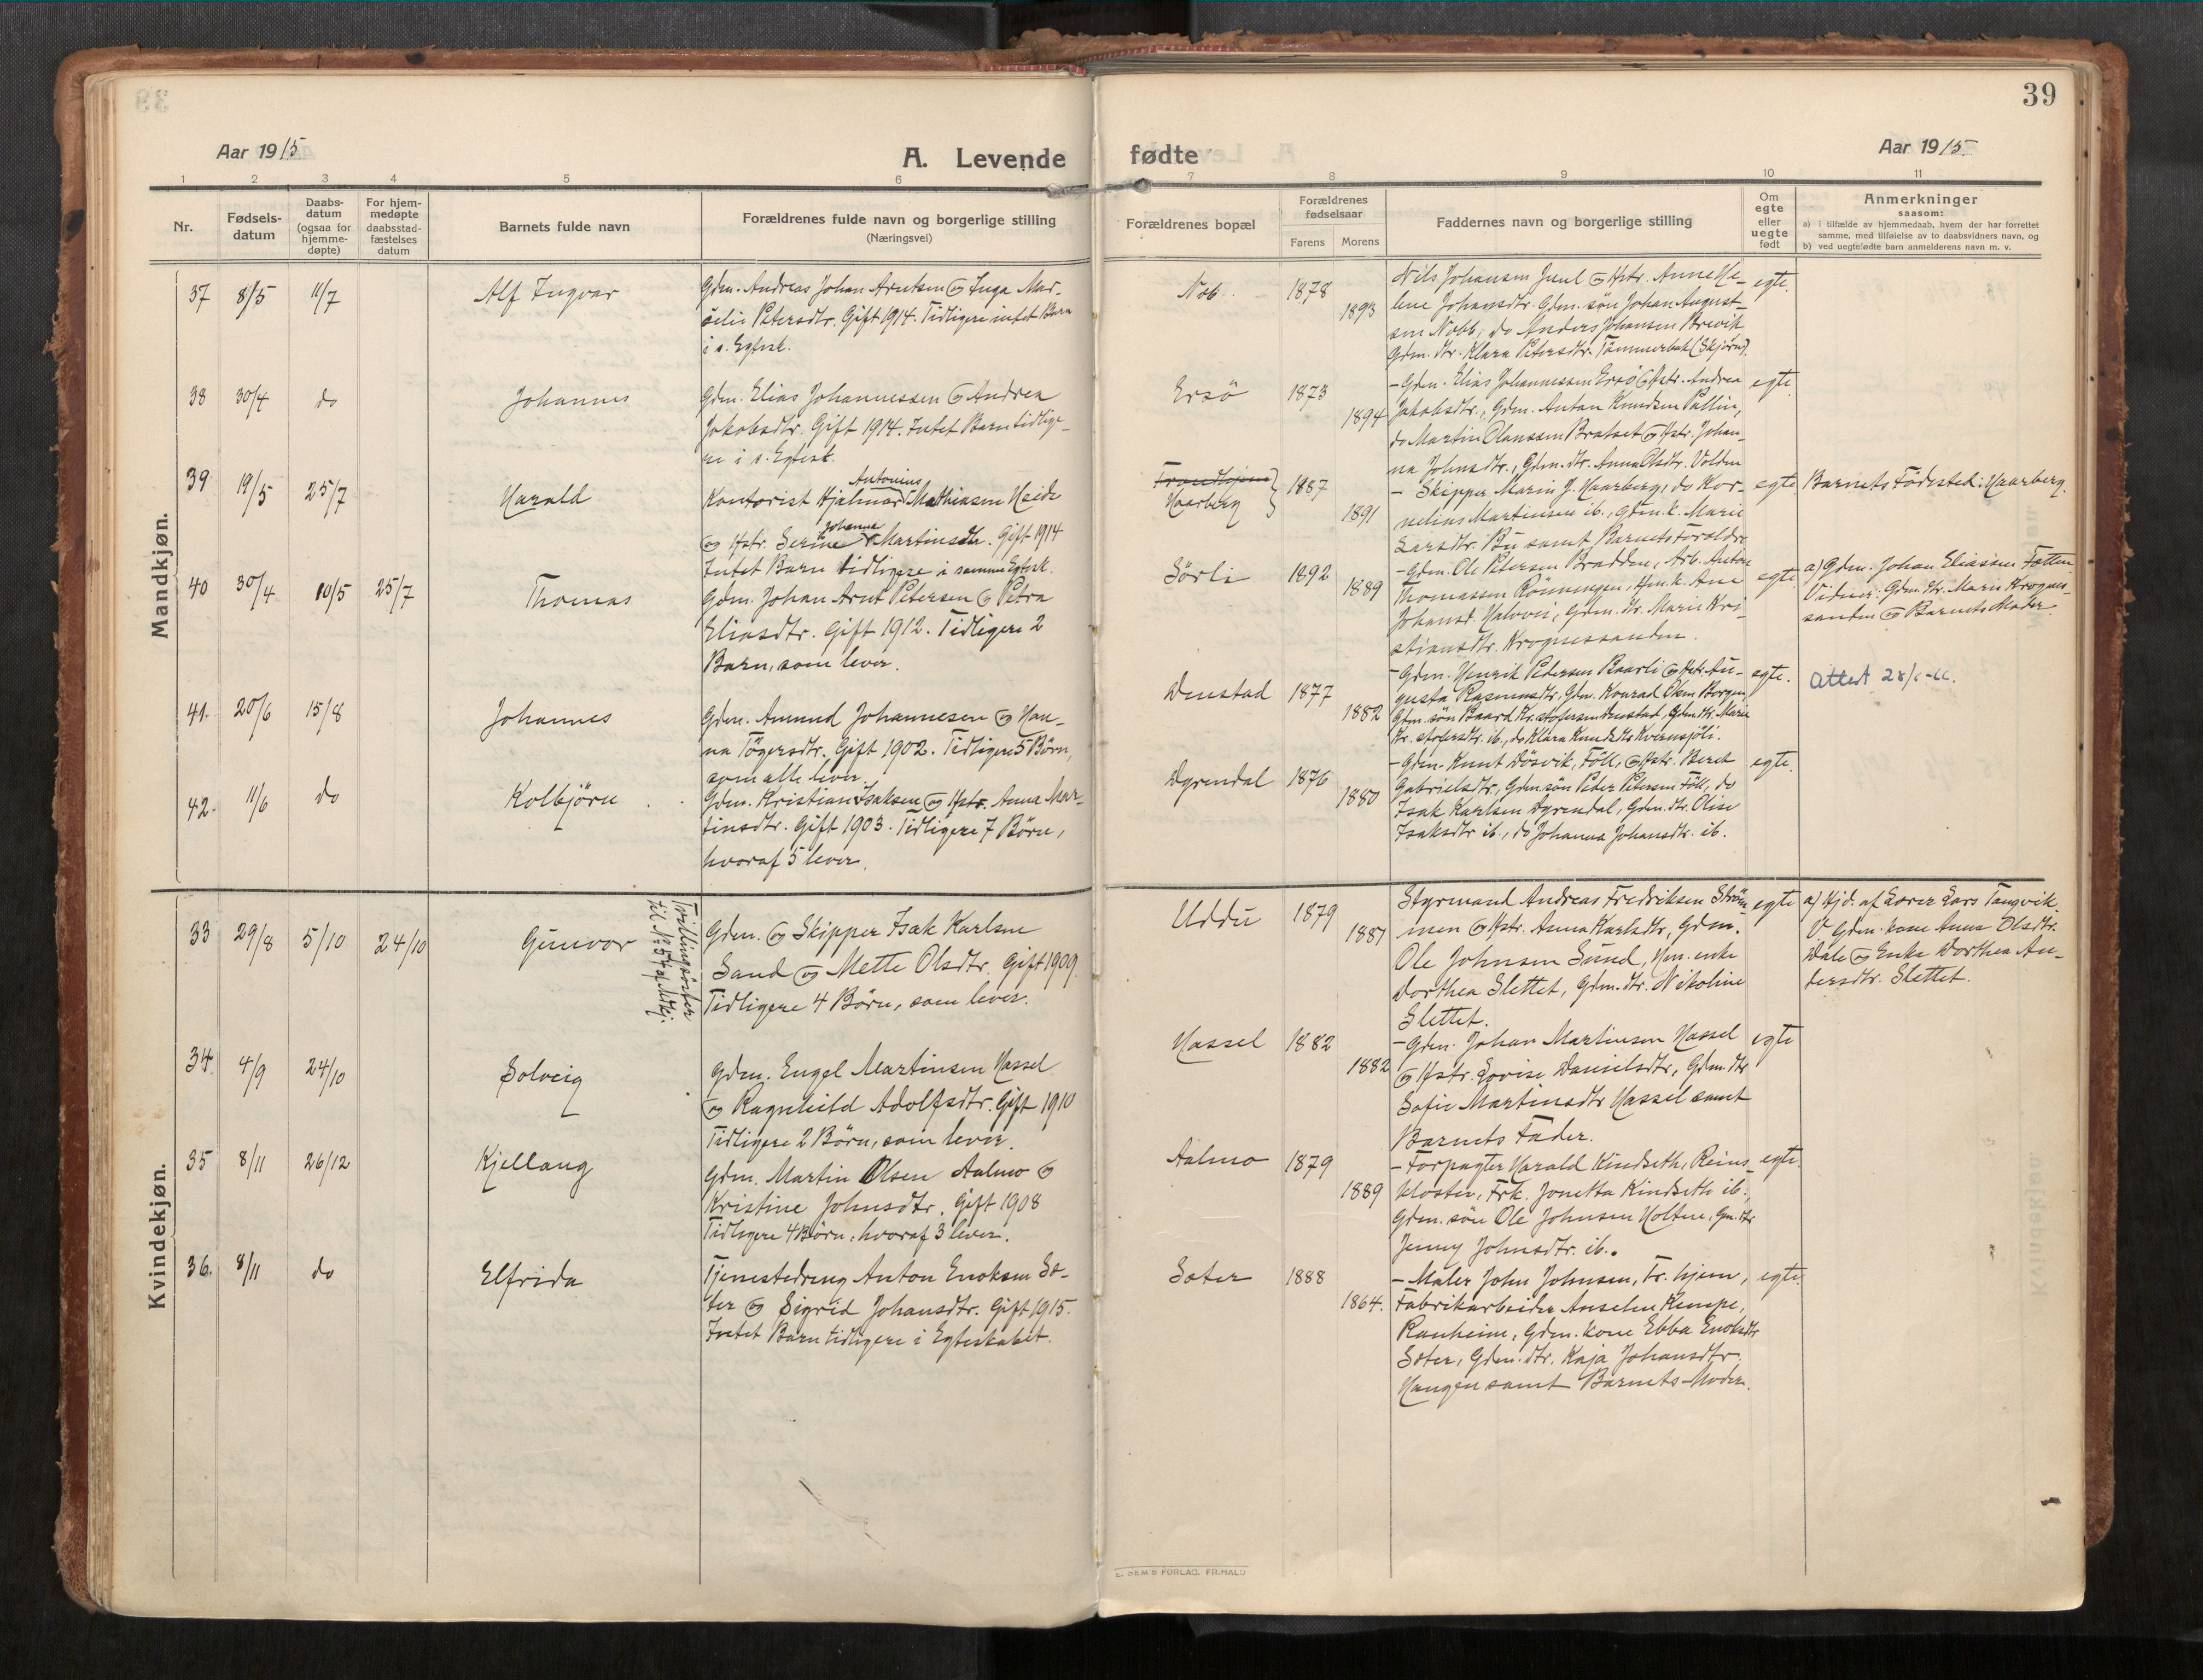 39
Aar 1915
A. Levende fødte
Aar 1915
1 2 3 4 5 6 7 8 9 10 11
Nr.
Fødsels-
datum
Daabs-
datum
(ogsaa for
hjemme-
døpte)
For hjem-
medøpte
daabsstad-
fæstelses
datum
Barnets fulde navn
Forældrenes fulde navn og borgerlige stilling
(Næringsvei)
Forældrenes bopæl
Forældrenes
fødselsaar
Farens Morens
Faddernes navn og borgerlige stilling
Om
egte
eller
uegte
født
Anmerkninger
saasom:
a) i tilfælde av hjemmedaab, hvem der har forrettet
samme, med tilføielse av to daabsvidners navn, og
b) ved uegtefødte barn anmelderens navn m. v.
Mandkjøn.
37 8/5 11/7 Alf Ingvar
Gdm. Andreas Johan Arntsen og Inga Mar-
selie Petersdtr. Gift 1914. Tidligere intet Barn
i s. Egtesk.
Nøb 1878 1893
Nils Johansen Juul og Hstr. Anne He-
lene Johansdtr. Gdm. søn Johan August-
sen Nobb, do Anders Johansen Brevik
Gdm. dtr. Klara Petersdtr. Tømmerbak (Skjørn).
egte.
38 30/4 do Johannes
Gdm. Elias Johannessen og Andrea
Jakobsdtr. Gift 1914. Intet Barn tidlige-
re i s. Egtesk.
Ersö 1873 1894
- Gdm. Elias Johannessen Ersö og Hstr. Andrea
Jakobsdtr., Gdm. Anton Knudsen Pallin,
do Martin Olaussen Bratset og Hstr. Johan-
na Johnsdtr., Gdm. dtr. Anna Olsdtr. Volden
egte
39 19/5 25/7 Harald
Kontorist Hjalmar Antonius Mathiasen Heide
og Hstr. Serine Johanna Martinsdtr. Gift 1914
Intet Barn tidligere i samme Egtesk.
Trondhjem
Haarberg
1887 1891
- Skipper Marin J. Haarberg, do Kor-
nelius Martinsen ib., Gdm.k. Marie
Larsdtr. Bu samt Barnets Forældre
egte
Barnets Fødested: Haarberg.
40 30/4 10/5 25/7 Thomas
Gdm. Johan Arnt Petersen og Petra
Eliasdtr. Gift 1912. Tidligere 2
Barn, som lever.
Sörli 1892 1889
- Gdm. Ole Petersen Bradden, Arb. Anton
Thomassen Rönningen, Hm.k. Ane
Johansd. Halvvei, Gdm. dtr. Marie Kri-
stiansdtr. Krognessanden.
egte
a) Gdm. Johan Eliassen Fætten
Vidner: Gdm. dtr. Marie Krognes-
sanden og Barnets Moder.
41. 20/6 15/8 Johannes
Gdm. Amund Johannesen og Han-
na Tögersdtr. Gift 1902. Tidligere 5 Børn,
som alle lever.
Denstad 1877 1882
- Gdm. Henrik Pedersen Baarli og Hstr. Au-
gusta Rasmusdtr, Gdm. Konrad Olsen Borgen,
Gdm. søn Baard Kristofersen Denstad, Gdm. dtr. Marie
Kristofersdtr. ib., do Klara Knudsdtr Kvernsjöli.
egte.
Attest
42. 11/6 do Kolbjörn
Gdm. Kristian Isaksen og Hstr. Anna Mar-
tinsdtr. Gift 1903. Tidligere 7 Børn,
hvoraf 5 lever.
Dyrendal 1876 1880
- Gdm. Knut Dösvik, Föll, og Hstr. Beret
Gabrielsdtr., Gdm. søn Peder Petersen Föll, do
Isak Karlsen Dyrendal, Gdm. dtr. Olise
Isaksdtr ib., do Johanna Johansdtr. ib.
egte.
Kvindekjøn.
33 29/8 5/10 24/10 Gunvor
Tvillingsøster
Gdm. og Skipper Isak Karlsen
Sand og Mette Olsdtr. Gift 1909.
Tidligere 4 Børn, som lever.
Uddu 1879 1887
Styrmand Andreas Fredriksen Ström-
men og Hstr. Anna Karlsdtr, Gdm.
Ole Johnsen Sund, Hm. enke
Dorthea Slettet, Gdm. dtr. Nikoline
Slettet.
egte
a) Hjd. af Lærer Lars Tangvik
V. Gdm. kone Anna Olsdtr.
Dale og Enke Dorthea An-
dersdtr. Slettet.
34 4/9 24/10 Solveig
Gdm. Engel Martinsen Hassel
og Ragnhild Adolfsdtr. Gift 1910
Tidligere 2 Børn, som lever.
Hassel 1882 1882
- Gdm. Johan Martinsen Hassel
og Hstr. Lovise Danielsdtr, Gdm. dtr
Sofie Martinsdtr Hassel samt
Barnets Fader.
egte
35 8/11 26/12 Kjellaug
Gdm. Martin Olsen Aalmo og
Kristine Johnsdtr. Gift 1908
Tidligere 4 Børn, hvoraf 3 lever.
Aalmo 1879 1889
- Forpagter Harald Kindseth, Reins-
kloster, Frk. Jonetta Kindseth ib.,
Gdm. søn Ole Johnsen Holten, Gm. dtr
Jenny Johnsdtr. ib.
egte.
36. 8/11 do Elfrida
Tjenestedreng Anton Enoksen Sæ-
ter og Sigrid Johansdtr. Gift 1915.
Intet Barn tidligere i Egteskabet.
Sæter 1888 1864.
- Maler John Johnsen, Tr.hjem,
Fabrikarbeider Anselm Kempe,
Ranheim, Gdm. kone Ebba Enoksdtr
Sæter, Gdm. dtr. Kaja Johansdtr.
Haugen samt Barnets Moder.
egte